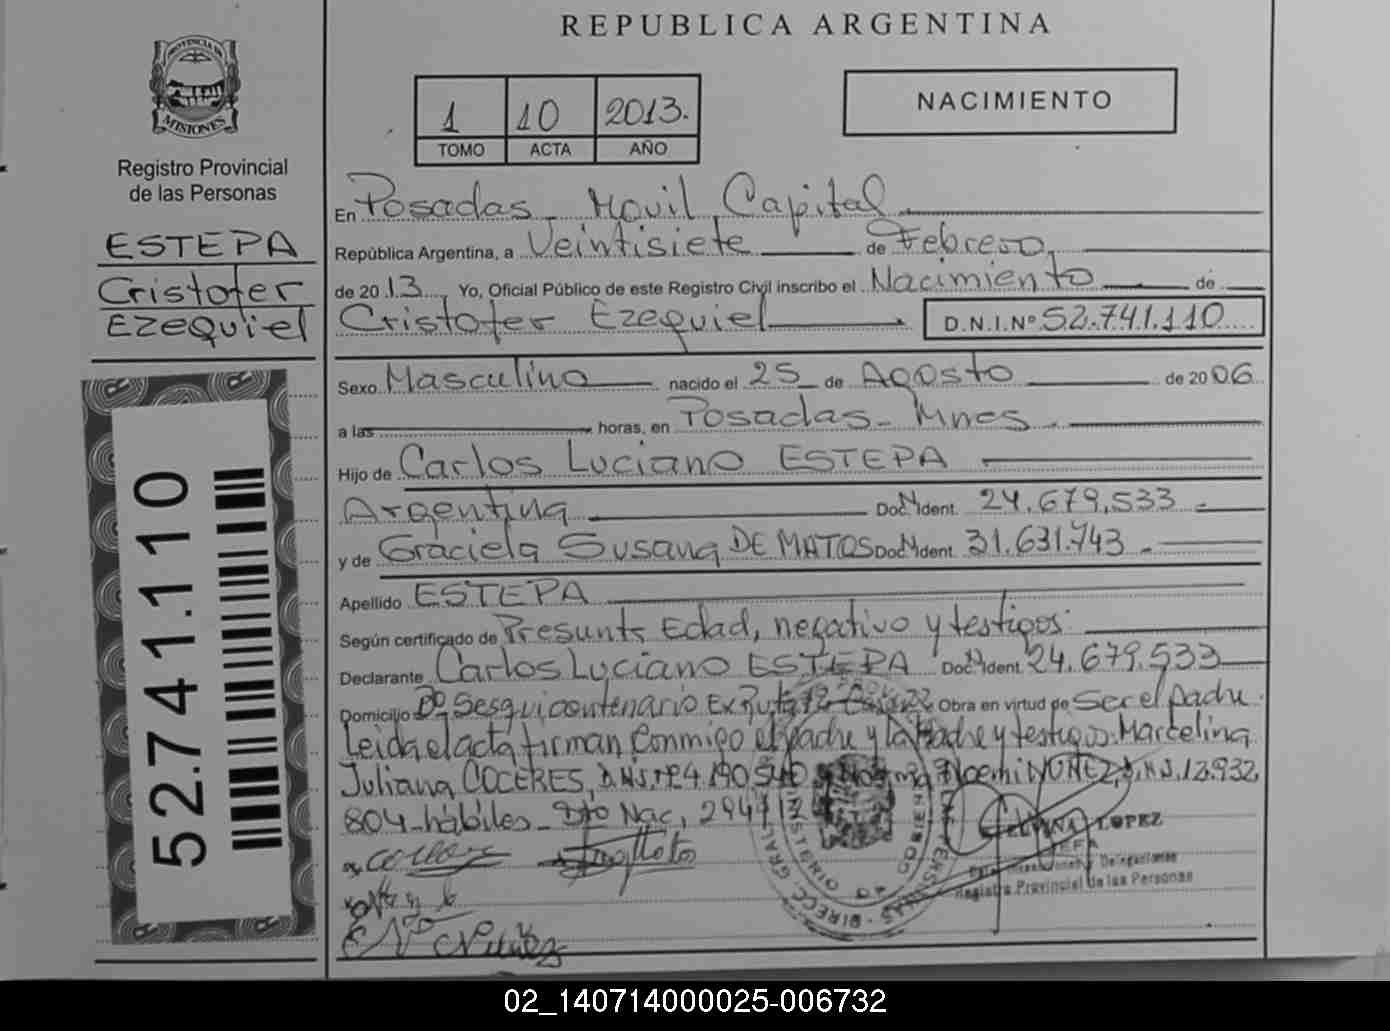 REPUBLICA ARGENTINA
PROVINCIA DE
MISIONES
Registro Provincial
de las Personas
ESTEPA
Cristofer
Ezequiel
52.741.110
1 10 2013.
TOMO ACTA AÑO
NACIMIENTO
En Posadas - Movil Capital
República Argentina, a Veintisiete de Febrero
de 2013 Yo, Oficial Público de este Registro Civil inscribo el Nacimiento de
Cristofer Ezequiel D.N.I.Nº 52.741.110
Sexo Masculino nacido el 25 de Agosto de 2006
a las horas, en Posadas - Mnes
Hijo de Carlos Luciano ESTEPA
Argentina Doc. N. Ident. 24.679.533
y de Graciela Susana DE MATOS Doc. N. Ident. 31.631.743
Apellido ESTEPA
Según certificado de Presunt. Edad, negativo y testigos.
Declarante Carlos Luciano ESTEPA Doc. N. Ident. 24.679.533
Domicilio Bº Sesquicentenario Ex Ruta 12 Obra en virtud de Ser el padre.
Leida el acta firman conmigo el padre y la Madre y testigos: Marcelina
Juliana COCERES, D.N.I. Noemi NUÑEZ, D.N.I. 12.932.
804 - hábiles - Dto Nac,
LOPEZ
JEFA
Registro Provincial de las Personas
02_140714000025-006732